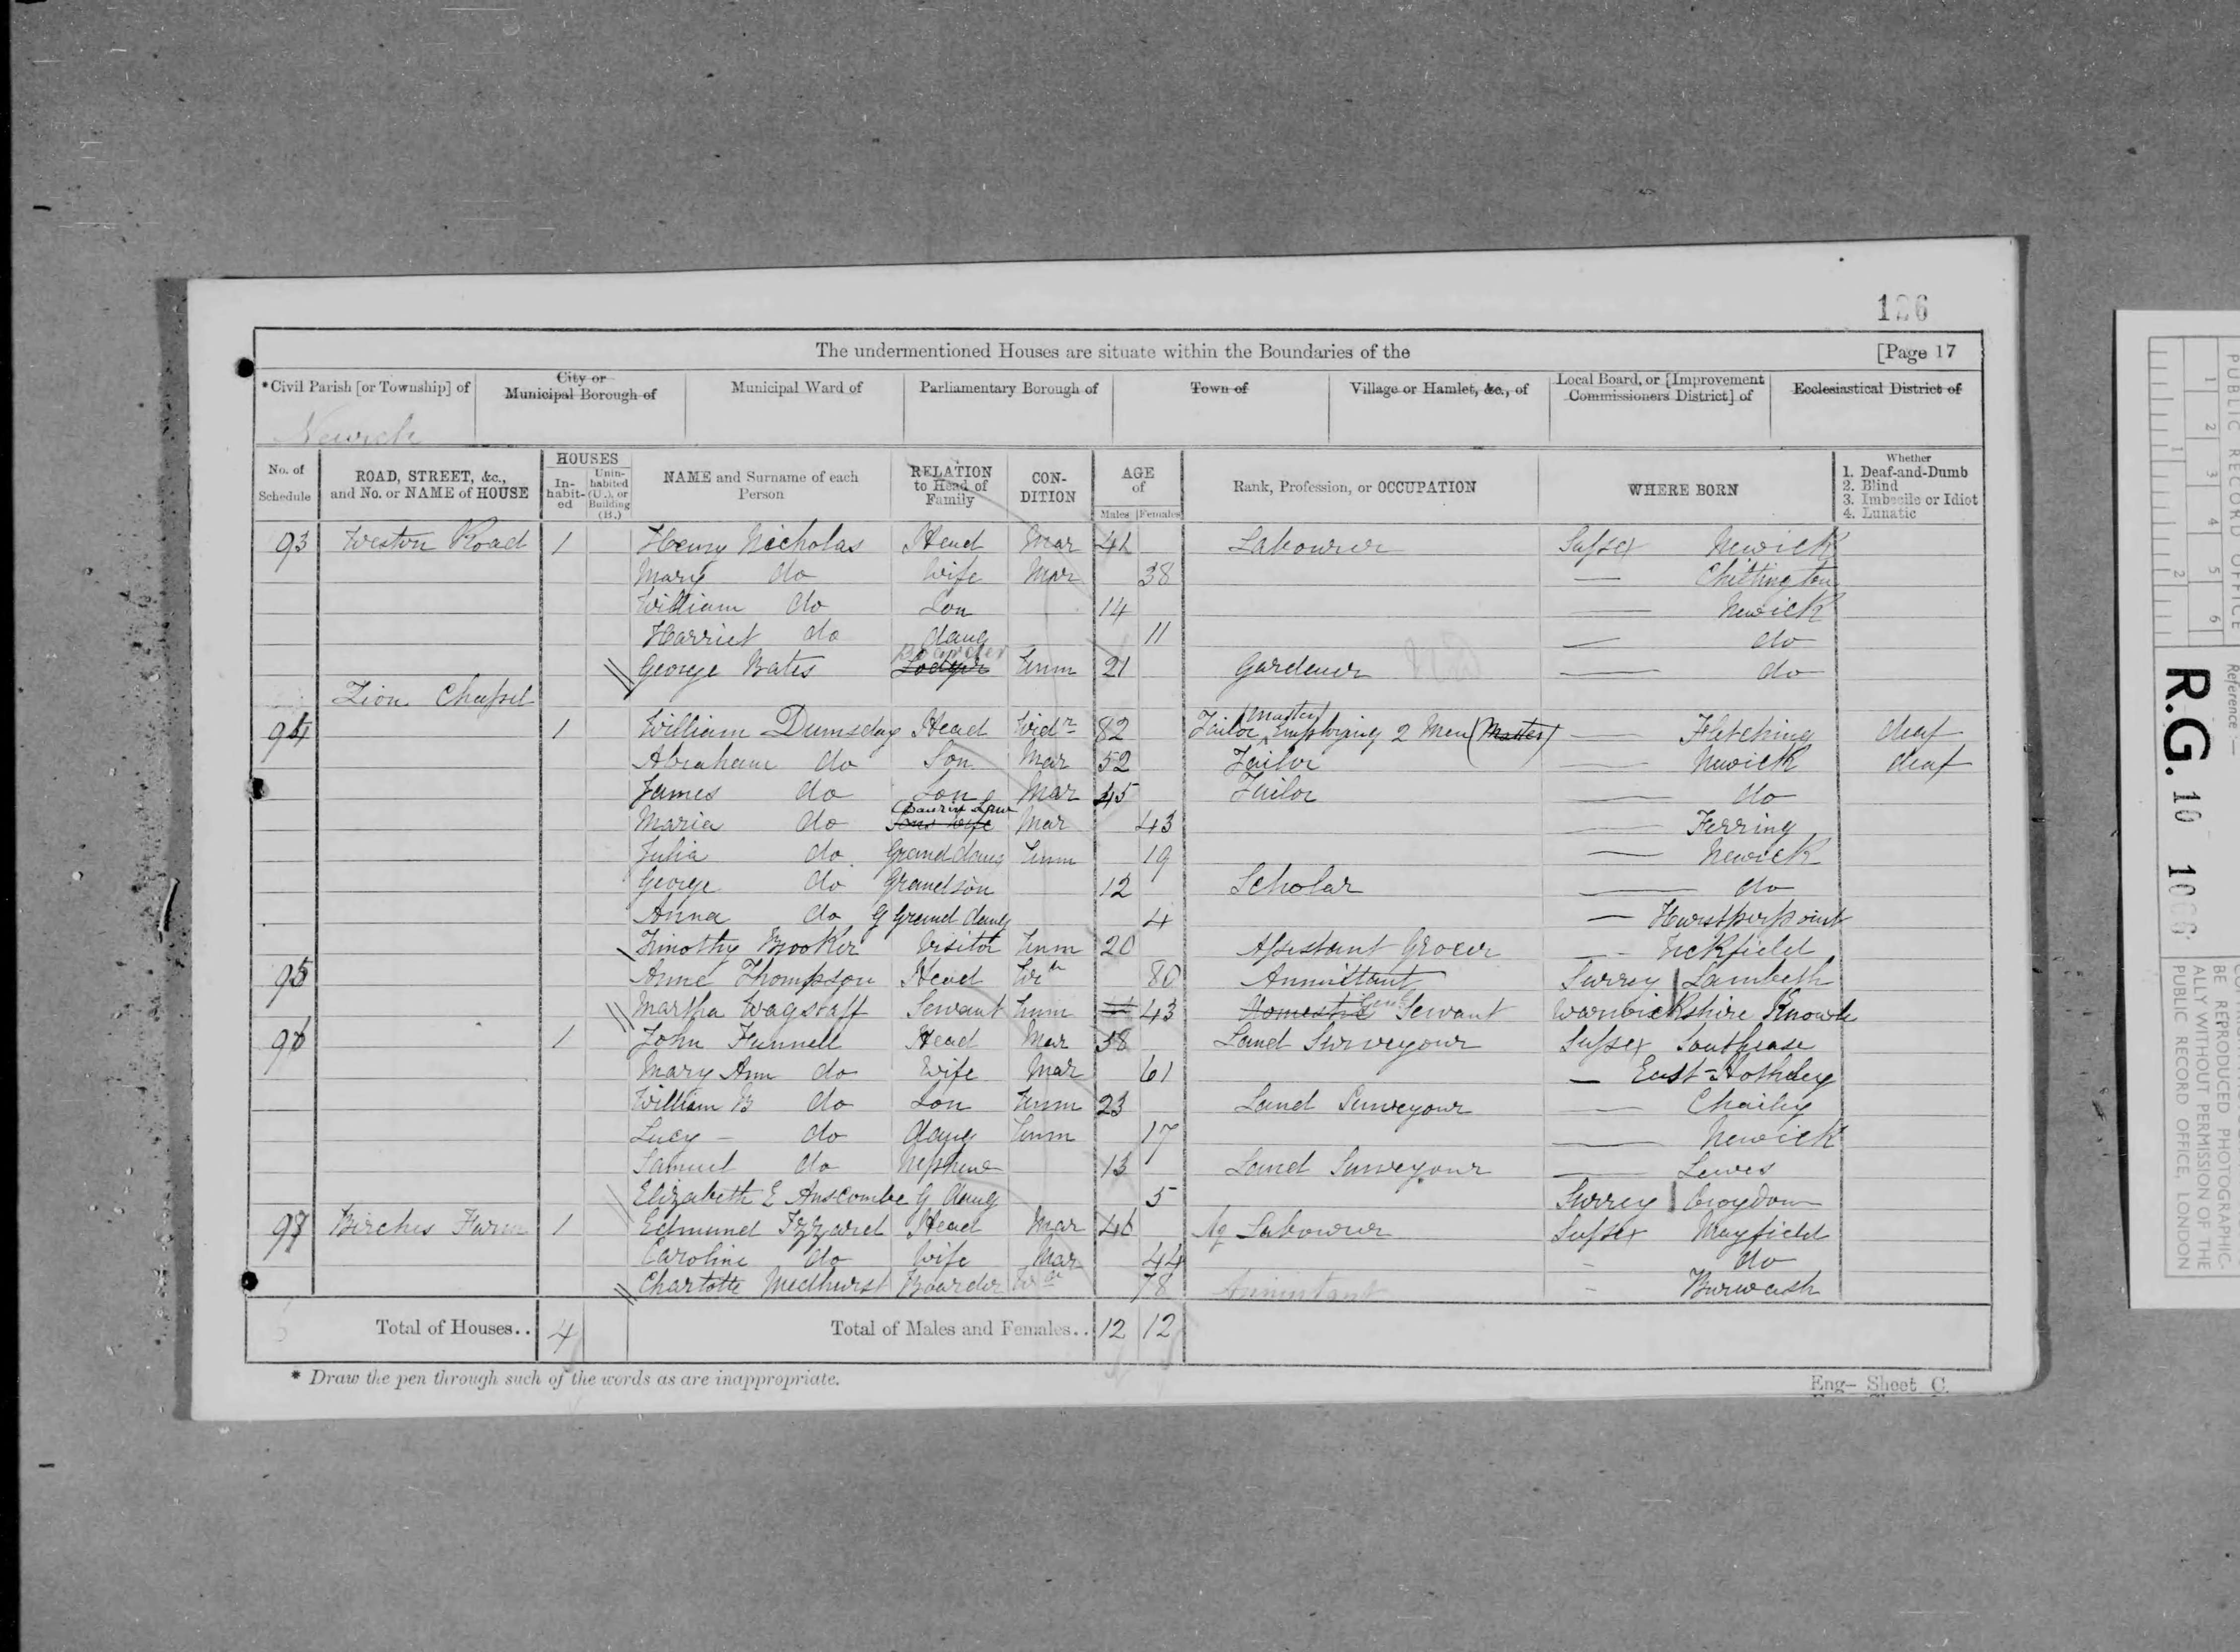 126
The undermentioned Houses are situate within the Boundaries of the [Page 17
*Civil Parish [or Township] of City or Municipal Borough of Municipal Ward of Parliamentary Borough of Town of Village or Hamlet, &c., of Local Board, or [Improvement Commissioners District] of Ecclesiastical District of
Newick
No. of Schedule ROAD, STREET, &c., and No. or NAME of HOUSE HOUSES In-habit-ed Unin-habited (U.), or Building (B.) NAME and Surname of each Person RELATION to Head of Family CON-DITION AGE of Males Females Rank, Profession, or OCCUPATION WHERE BORN Whether 1. Deaf-and-Dumb 2. Blind 3. Imbecile or Idiot 4. Lunatic
93 Weston Road 1 Henry Nicholas Head Mar 41 Labourer Sussex Newick
Mary do Wife Mar 38 — Chiltington
William do Son 14 — Newick
Harriet do daug 11 — do
George Bates Lodger Boarder Unm 21 Gardener — do
Zion Chapel
94 1 William Dumsday Head Widr 82 Tailor (Master) Employing 2 Men (Master) — Fletching deaf
Abraham do Son Mar 52 Tailor — Newick deaf
James do Son Mar 45 Tailor — do
Maria do Sons wife Daur in Law Mar 43 — Ferring
Julia do Grand daug Unm 19 — Newick
George do Grandson 12 Scholar — do
Anna do G Grand daug 4 — Hurstpierpoint
Timothy Brooker Visitor Unm 20 Assistant Grocer — Uckfield
95 Anne Thompson Head 80 Annuitant Surrey Lambeth
Martha Wagstaff Servant Unm 43 Domestic Genl Servant Warwickshire Knowle
96 1 John Funnell Head Mar 58 Land Surveyour Sussex Southease
Mary Ann do Wife Mar 61 — East-Hothley
William B do Son Unm 23 Land Surveyour — Chailey
Lucy — do daug Unm 17 — Newick
Samuel do Nephew 13 Land Surveyour — Lewes
Elizabeth E Anscombe G daug 5 Surrey Croydon
97 Birches Farm 1 Edmund Izzard Head Mar 46 Ag Labourer Sussex Mayfield
Caroline do Wife Mar 44 - do
Charlotte Medhurst Boarder 78 Annuitant - Burwash
Total of Houses.. 4 Total of Males and Females.. 12 12
* Draw the pen through such of the words as are inappropriate.
Eng— Sheet C.
PUBLIC RECORD OFFICE
1 2 3 4 5 6
1 2
Reference —
R.G. 10
BE REPRODUCED PHOTOGRAPHIC-
ALLY WITHOUT PERMISSION OF THE
PUBLIC RECORD OFFICE, LONDON